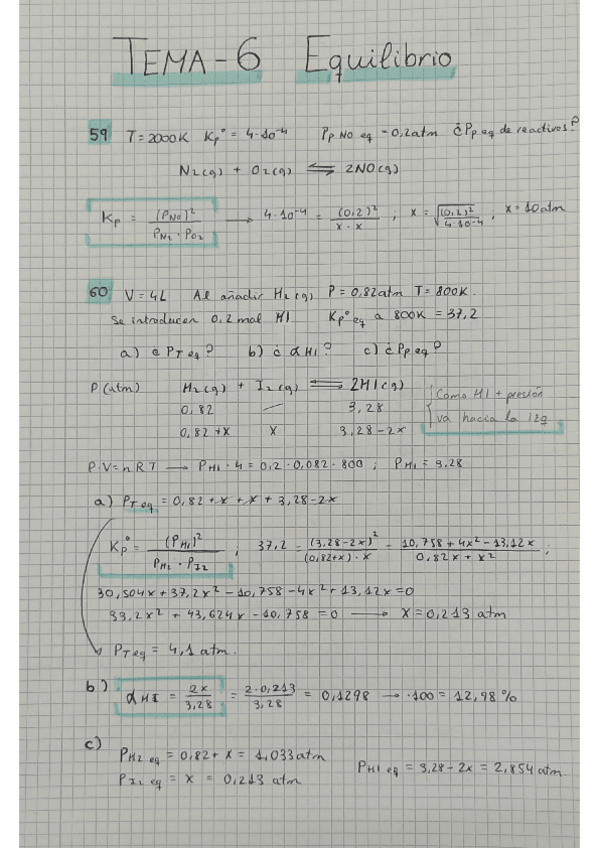 TEMA-6 Equilibrio
59 T=2000K Kp° = 4·10⁻⁴ Pp NO eq = 0,2atm ¿Pp eq de reactivos?
N₂(g) + O₂(g) ⇌ 2NO(g)
Kp = (P_NO)² / P_N₂ · P_O₂ → 4·10⁻⁴ = (0,2)² / x·x ; x = √((0,2)² / 4·10⁻⁴) ; x = 10atm
60 V=4L Al añadir H₂(g) P = 0,82atm T = 800K.
Se introducen 0,2 mol HI Kp° eq a 800K = 37,2
a) ¿P_T eq? b) ¿α HI? c) ¿Pp eq?
P(atm) H₂(g) + I₂(g) ⇌ 2HI(g) Como HI + presión
0,82 — 3,28 va hacia la izq
0,82+x x 3,28-2x
P·V=nRT → P_HI · 4 = 0,2 · 0,082 · 800 ; P_HI = 3,28
a) P_T eq = 0,82 + x + x + 3,28-2x
Kp° = (P_HI)² / P_H₂ · P_I₂ ; 37,2 = (3,28-2x)² / (0,82+x)·x = 10,758 + 4x² - 13,12x / 0,82x + x² ;
30,504x + 37,2x² - 10,758 - 4x² + 13,12x = 0
33,2x² + 43,624x - 10,758 = 0 → x = 0,213 atm
P_T eq = 4,1 atm.
b) α HI = 2x / 3,28 = 2·0,213 / 3,28 = 0,1298 → ·100 = 12,98%
c) P_H₂ eq = 0,82 + x = 1,033 atm
P_I₂ eq = x = 0,213 atm P_HI eq = 3,28 - 2x = 2,854 atm